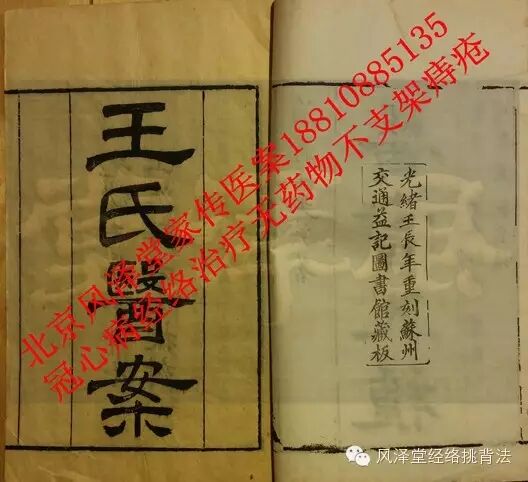 王氏醫案
光緒壬辰年重刻蘇州
交通益記圖書館藏板
北京风泽堂家传医案18810885135
冠心病经络治疗无药物不支架痔疮
风泽堂经络挑背法